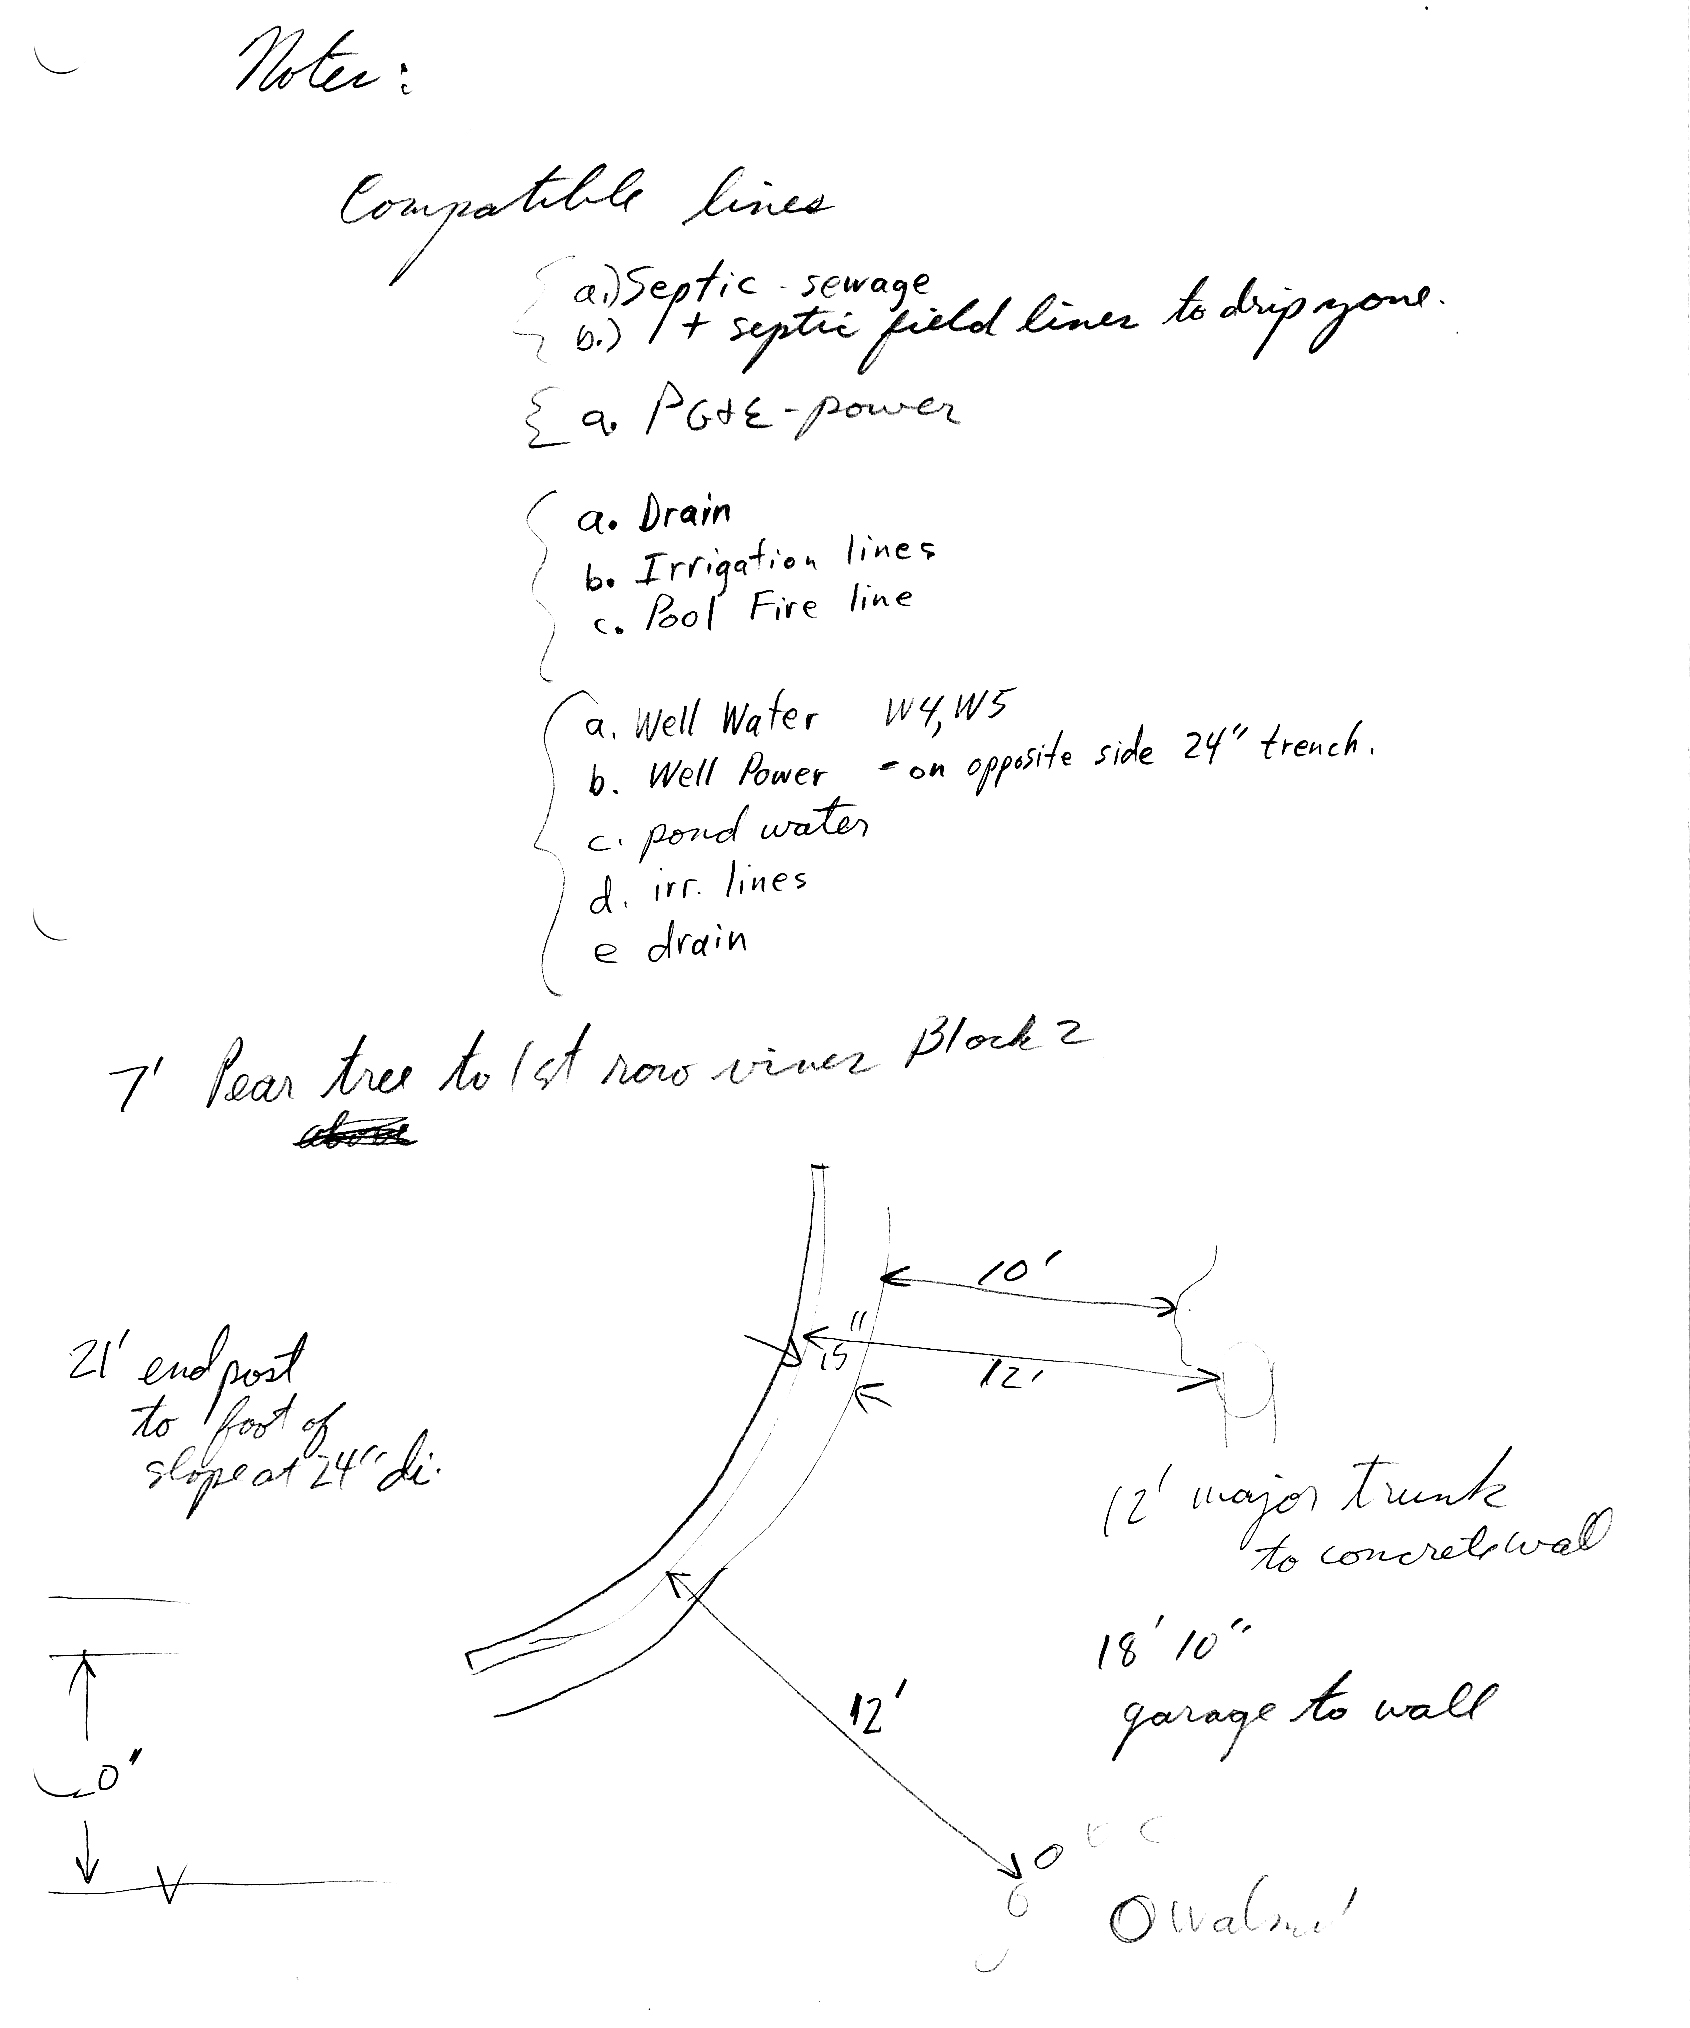 Notes:
Compatible lines
a.) Septic - sewage
b.) " + septic field lines to drip zone.
a. PG&E - power
a. Drain
b. Irrigation lines
c. Pool Fire line
a. Well Water W4, W5
b. Well Power - on opposite side 24" trench.
c. pond water
d. irr. lines
e drain
7' Pear tree to 1st row vines Block 2
10'
15"
12'
21' end post
to foot of
slope at 24" di.
12' major trunk
to concrete wall
18' 10"
garage to wall
12'
0"